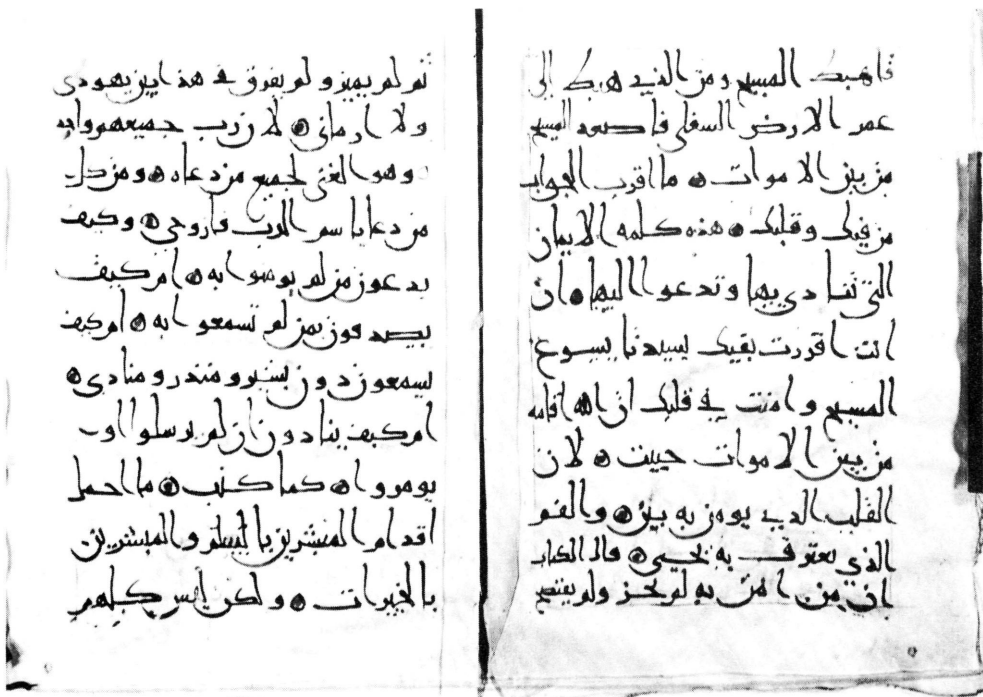 فاهبط المسيح ومن الذي هبط الى
عمر الارض السفلى فاصعد المسيح
من بين الاموات ۞ ما اقرب الجواب
من فيك وقلبك ۞ هذه كلمه الايمان
التى ننادي بها وندعوا اليها ۞ ان
انت اقررت بفيك بسيدنا يسوع
المسيح وامنت في قلبك ان الله اقامه
من بين الاموات حييت ۞ لان
القلب الذي يومن به ۞ والفم
الذي يعترف به يحيى ۞ قال الكتاب
ان من امن به لم يخز ولم يفتضح
ثم لم يميز ولم يفرق في هذا بين يهودي
ولا ارمانى ۞ لان رب جميعهم واحد
وهو الغني لجميع من دعاه ۞ ومن كل
من دعا باسم الرب ۞ وكيف
يدعون من لم يومنوا به ۞ ام كيف
يصدقون بمن لم تسمعوا به ۞ ام كيف
يسمعون دون بشير ومنذر ومنادي ۞
ام كيف ينادون ان لم يرسلوا او
يومروا ۞ كما كتب ۞ ما اجمل
اقدام المبشرين بالسلم والمبشرين
بالخيرات ۞ ولكن ليس كلهم